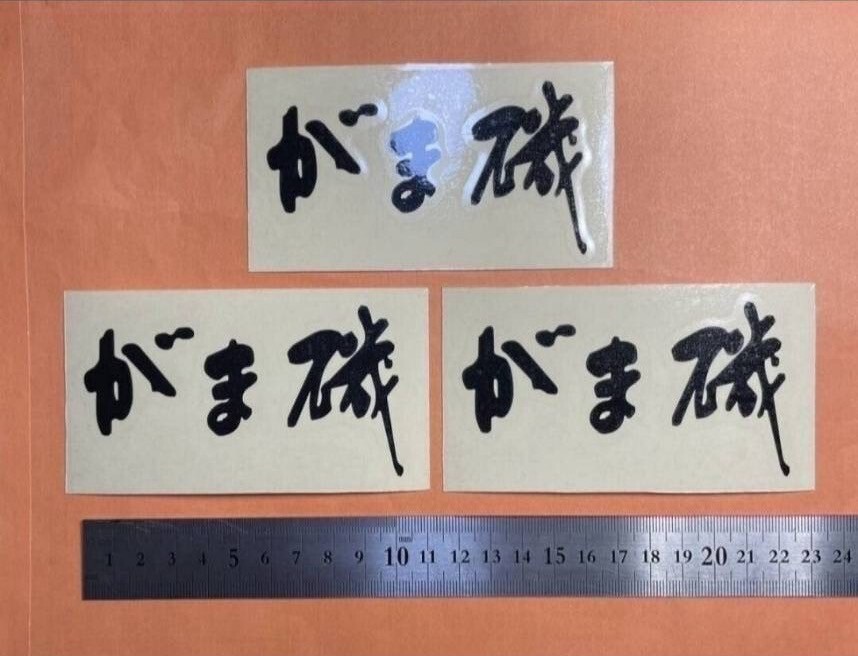 がま磯
がま磯
がま磯
mm
1 2 3 4 5 6 7 8 9 10 11 12 13 14 15 16 17 18 19 20 21 22 23 24